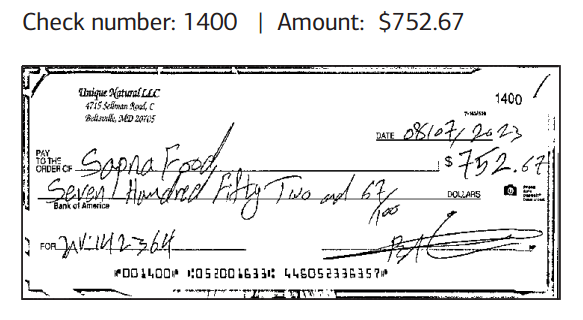 Check number: 1400 | Amount: $752.67
Unique Natural LLC
4715 Sellman Road, C
Beltsville, MD 20705
1400
DATE 08/07/2023
PAY TO THE ORDER OF Sapna Food $752.67
Seven Hundred Fifty Two and 67/100 DOLLARS
Bank of America
FOR INV:142364
⑈001400⑈ ⑆052001633⑆ 446052336357⑈